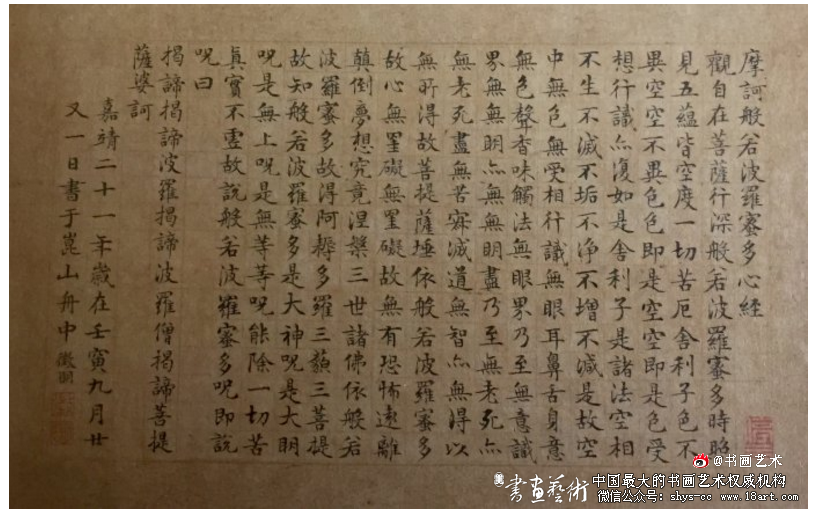 摩訶般若波羅蜜多心經
觀自在菩薩行深般若波羅蜜多時照
見五蘊皆空度一切苦厄舍利子色不
異空空不異色色即是空空即是色受
想行識亦復如是舍利子是諸法空相
不生不滅不垢不净不增不減是故空
中無色無受相行識無眼耳鼻舌身意
無色聲香味觸法無眼界乃至無意識
界無無明亦無無明盡乃至無老死亦
無老死盡無苦寂滅道無智亦無得以
無所得故菩提薩埵依般若波羅蜜多
故心無罣礙無罣礙故無有恐怖遠離
顛倒夢想究竟涅槃三世諸佛依般若
波羅蜜多故得阿耨多羅三藐三菩提
故知般若波羅蜜多是大神呪是大明
呪是無上呪是無等等呪能除一切苦
真實不虛故說般若波羅蜜多呪即說
呪曰
揭諦揭諦波羅揭諦波羅僧揭諦菩提
薩婆訶
嘉靖二十一年歲在壬寅九月廿
又一日書于崑山舟中徵明
@书画艺术
書畫藝術
中国最大的书画艺术权威机构
微信公众号：shys-cc www.18art.com